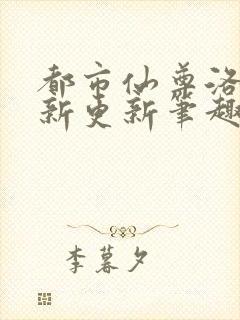 都市仙尊洛
新更新笔趣
李暮夕